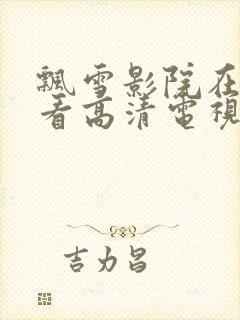 飄雪影院在
看高清電視
吉力昌